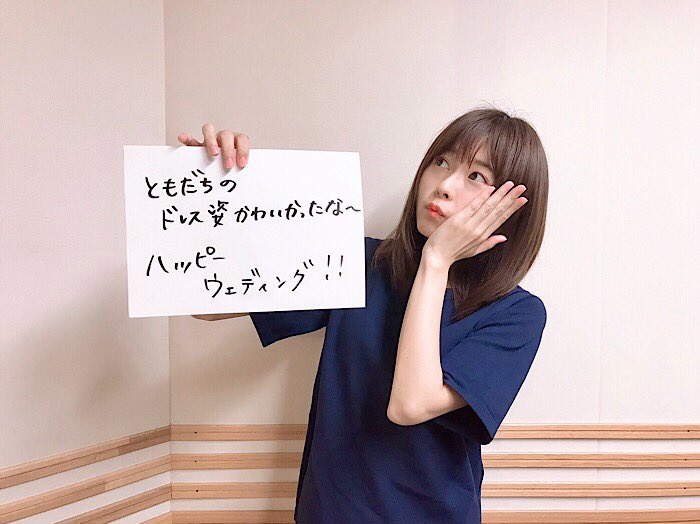 ともだちの
ドレス姿かわいかったな〜
ハッピー
ウェディング!!